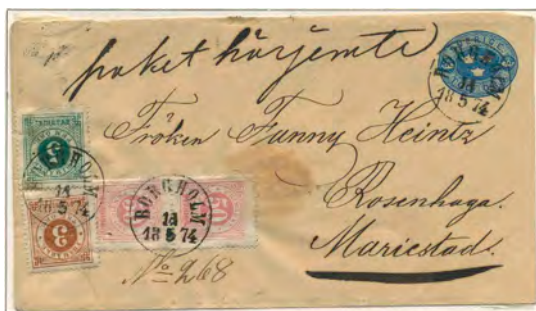 paket härjemte
BORGHOLM
18
18 5 74
Fröken Fanny Heintz
Rosenhaga.
Mariestad.
BORGHOLM
18
18 5 74
BORGHOLM
18
18 5 74
3
No 268